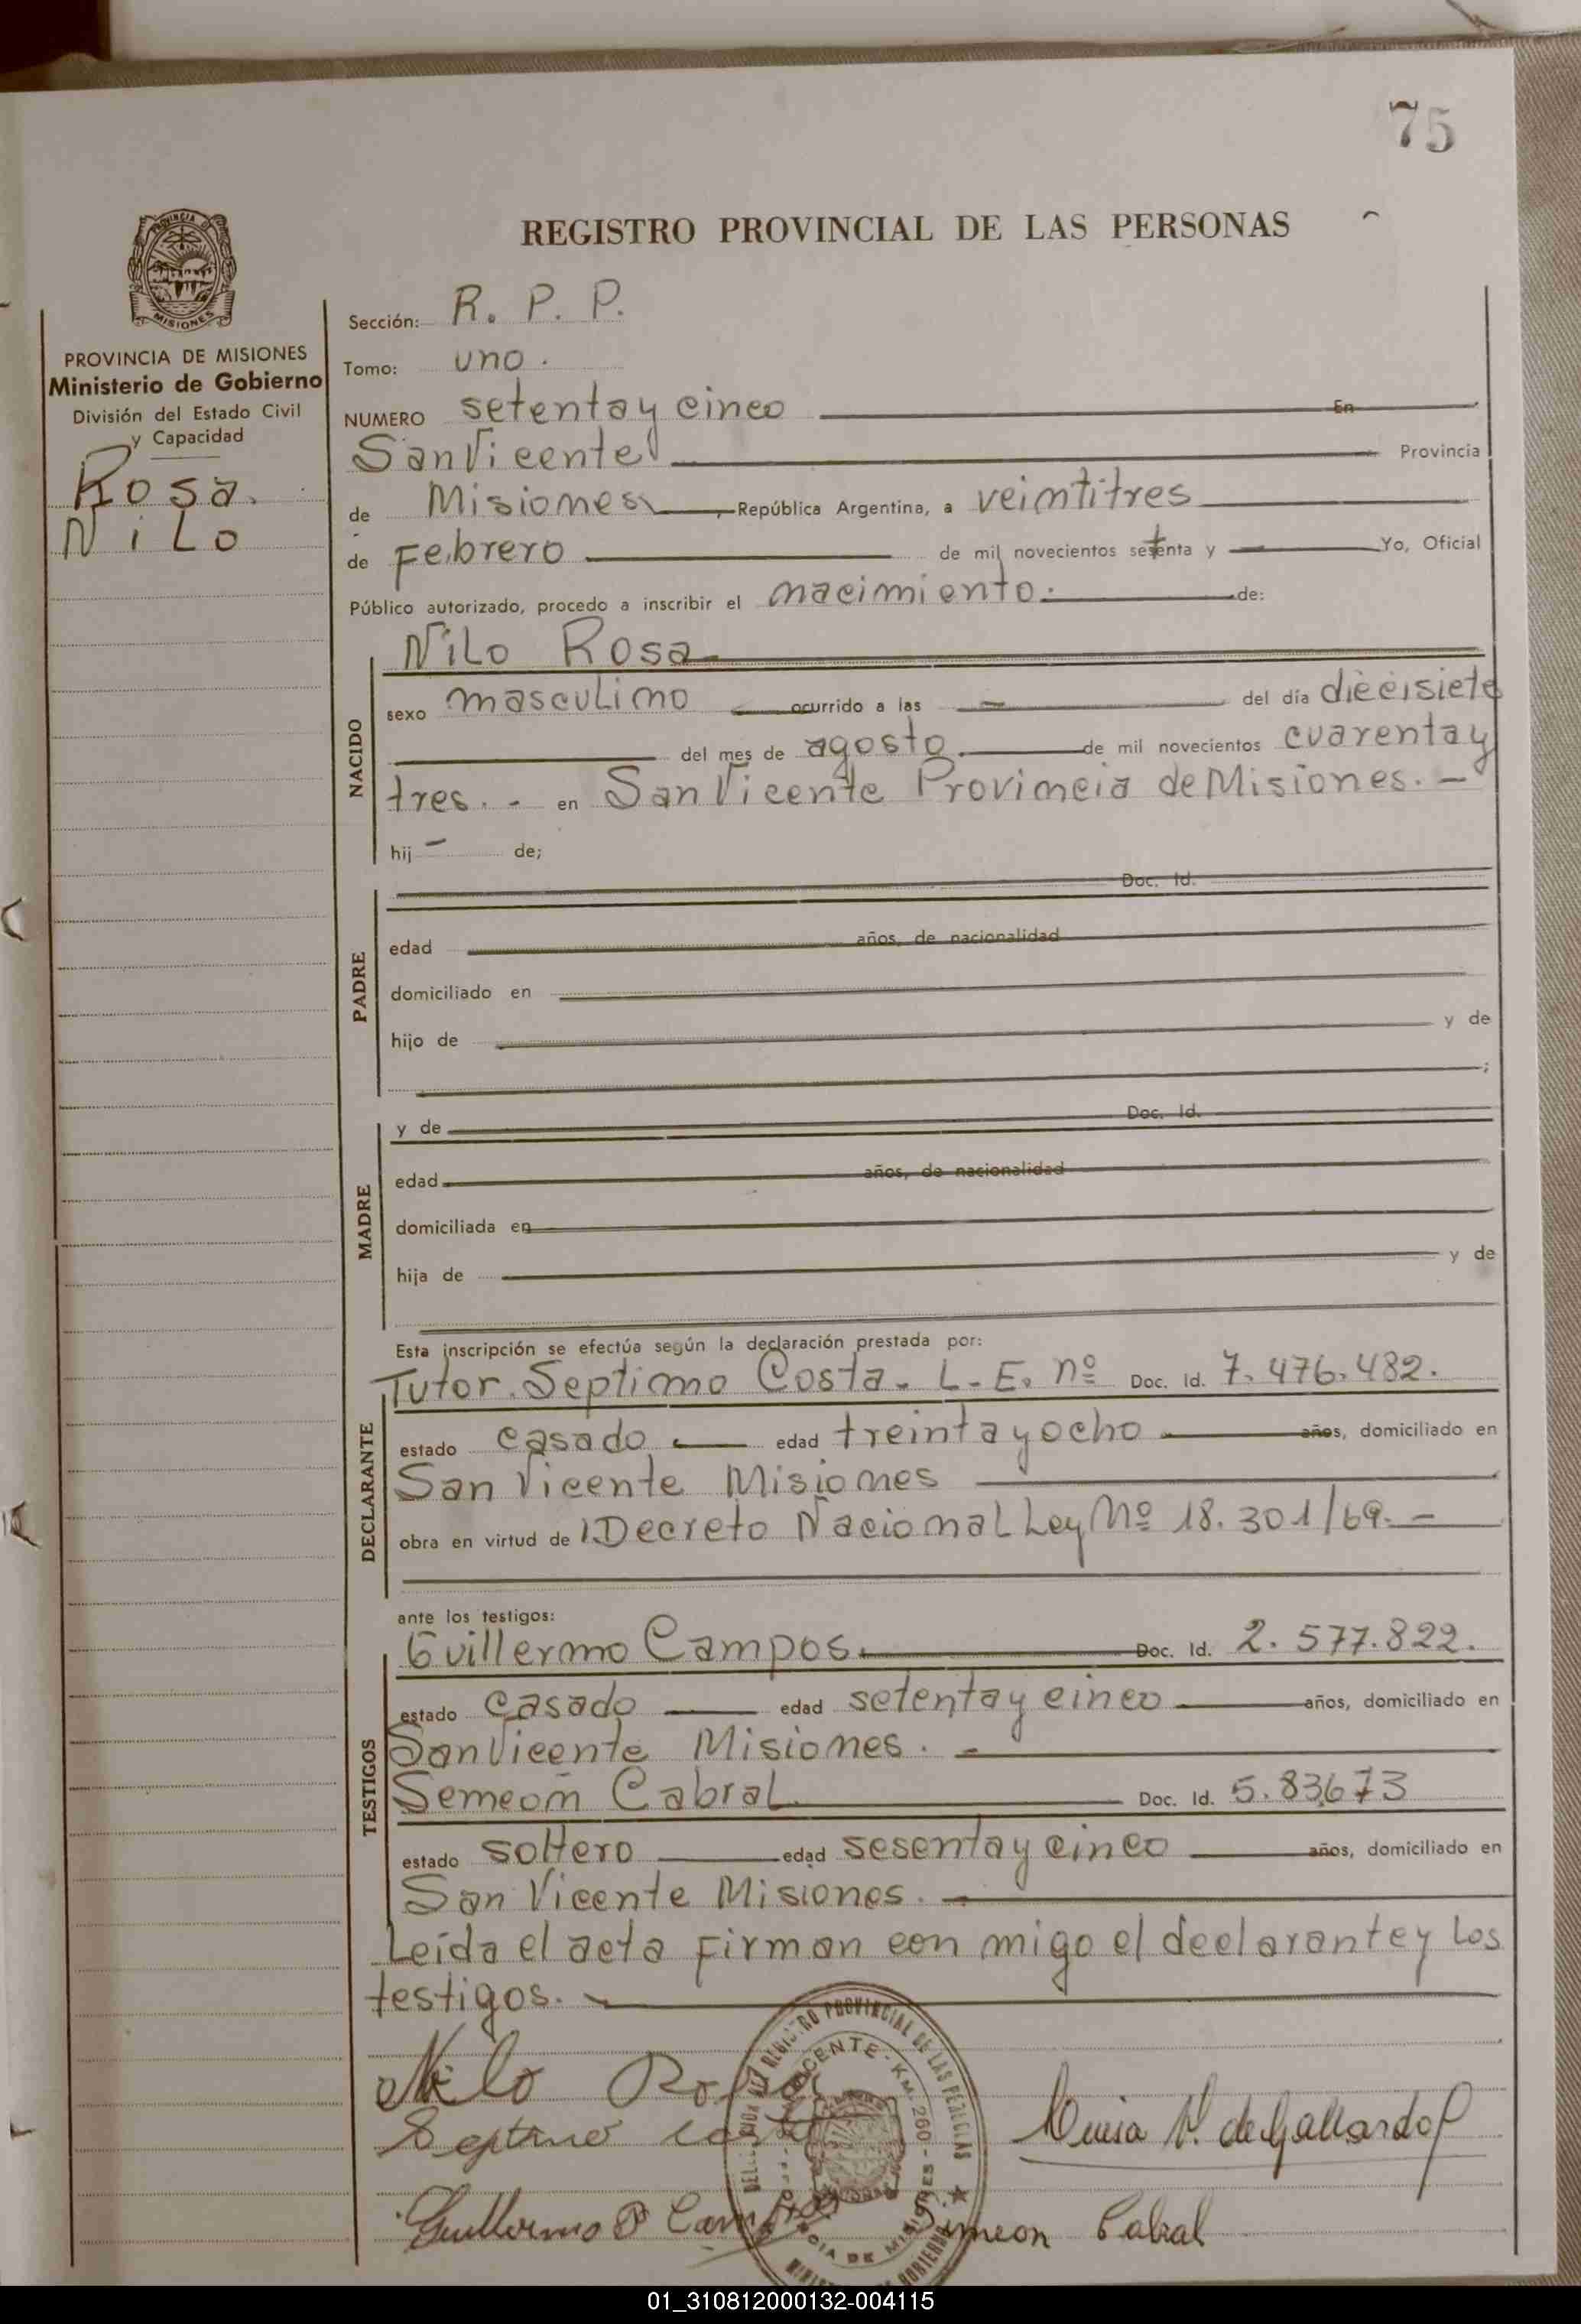 75
REGISTRO PROVINCIAL DE LAS PERSONAS
PROVINCIA DE MISIONES
Ministerio de Gobierno
División del Estado Civil
y Capacidad
Rosa.
Nilo
Sección: R. P. P.
Tomo: uno.
NUMERO setenta y cinco En
San Vicente Provincia
de Misiones, República Argentina, a veintitres
de Febrero de mil novecientos setenta y — Yo, Oficial
Público autorizado, procedo a inscribir el nacimiento. de:
NACIDO
Nilo Rosa
sexo masculino ocurrido a las — del día diecisiete
del mes de agosto. de mil novecientos cuarenta y
tres. - en San Vicente Provincia de Misiones. -
hij - de;
PADRE
Doc. Id.
edad años, de nacionalidad
domiciliado en
hijo de y de
;
MADRE
y de Doc. Id.
edad años, de nacionalidad
domiciliada en
hija de y de
Esta inscripción se efectúa según la declaración prestada por:
DECLARANTE
Tutor. Septimo Costa. L. E. nº Doc. Id. 7.476.482.
estado casado edad treinta y ocho años, domiciliado en
San Vicente Misiones
obra en virtud de Decreto Nacional Ley Nº 18.301/69. -
ante los testigos:
TESTIGOS
Guillermo Campos. Doc. Id. 2.577.822.
estado casado edad setenta y cinco años, domiciliado en
San Vicente Misiones. -
Semeon Cabral. Doc. Id. 5.83673
estado soltero edad sesenta y cinco años, domiciliado en
San Vicente Misiones. -
Leída el acta Firman con migo el declarante y los
testigos. -
Nilo Rosa
Septimo costa
de Gallardo
Guillermo P Campos
Simeon Cabral
REGISTRO PROVINCIAL DE LAS
VICENTE - KM 260 - MISIONES
PROVINCIA DE MISIONES
01_310812000132-004115